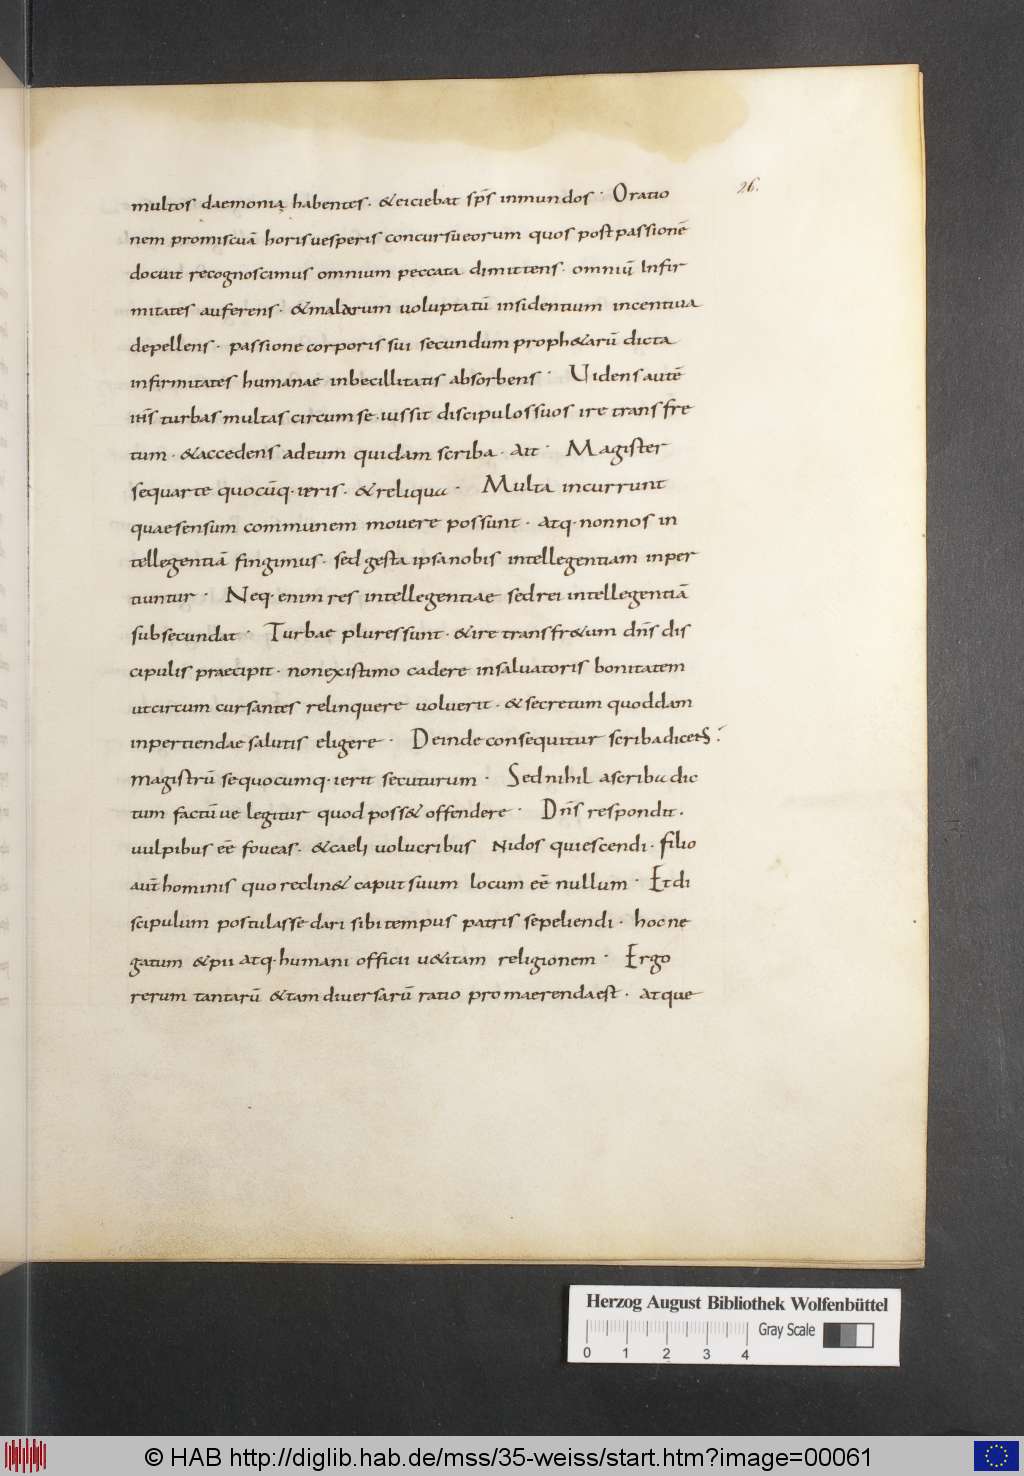 26.
multos daemonia habentes · & eiciebat sp̄s inmundos · Oratio
nem promiscuā horis vesperis concursu eorum quos post passionē
docuit recognoscimus omnium peccata dimittens · omniū Infir
mitates auferens · & malarum voluptatū insidentium incentiua
depellens · passione corporis sui secundum proph&arū dicta
infirmitates humanae inbecillitatis absorbens · Uidens autē
ih̄s turbas multas circum se · iussit discipulos suos ire trans fre
tum · & accedens ad eum quidam scriba · ait · Magister
sequar te quocūq · ieris · & reliqua · Multa incurrunt
quae sensum communem mouere possunt · atq · non nos in
tellegentiā fingimus · sed gesta ipsa nobis intellegentiam inper
tiuntur · Neq · enim res intellegentiae sed rei intellegentiā
subsecundat · Turbae plures sunt · & ire trans fr&um dn̄s dis
cipulis praecipit · non existimo cadere in saluatoris bonitatem
ut circum cursantes relinquere uoluerit · & secretum quoddam
inpertiendae salutis eligere · Deinde consequitur scriba dicens
magistrū se quocumq · ierit secuturum · Sed nihil a scriba dic
tum factū ue legitur quod poss& offendere · Dn̄s respondit ·
uulpibus eē foueas · & caeli uolucribus Nidos quiescendi · filio
aut̄ hominis quo reclin& caput suum locum eē nullum · Et di
scipulum postulasse dari sibi tempus patris sepeliendi · hoc ne
gatum & pii atq · humani officii u&itam religionem · Ergo
rerum tantarū & tam diuersarū ratio promaerenda est · atque
Herzog August Bibliothek Wolfenbüttel
Gray Scale
0 1 2 3 4
© HAB http://diglib.hab.de/mss/35-weiss/start.htm?image=00061